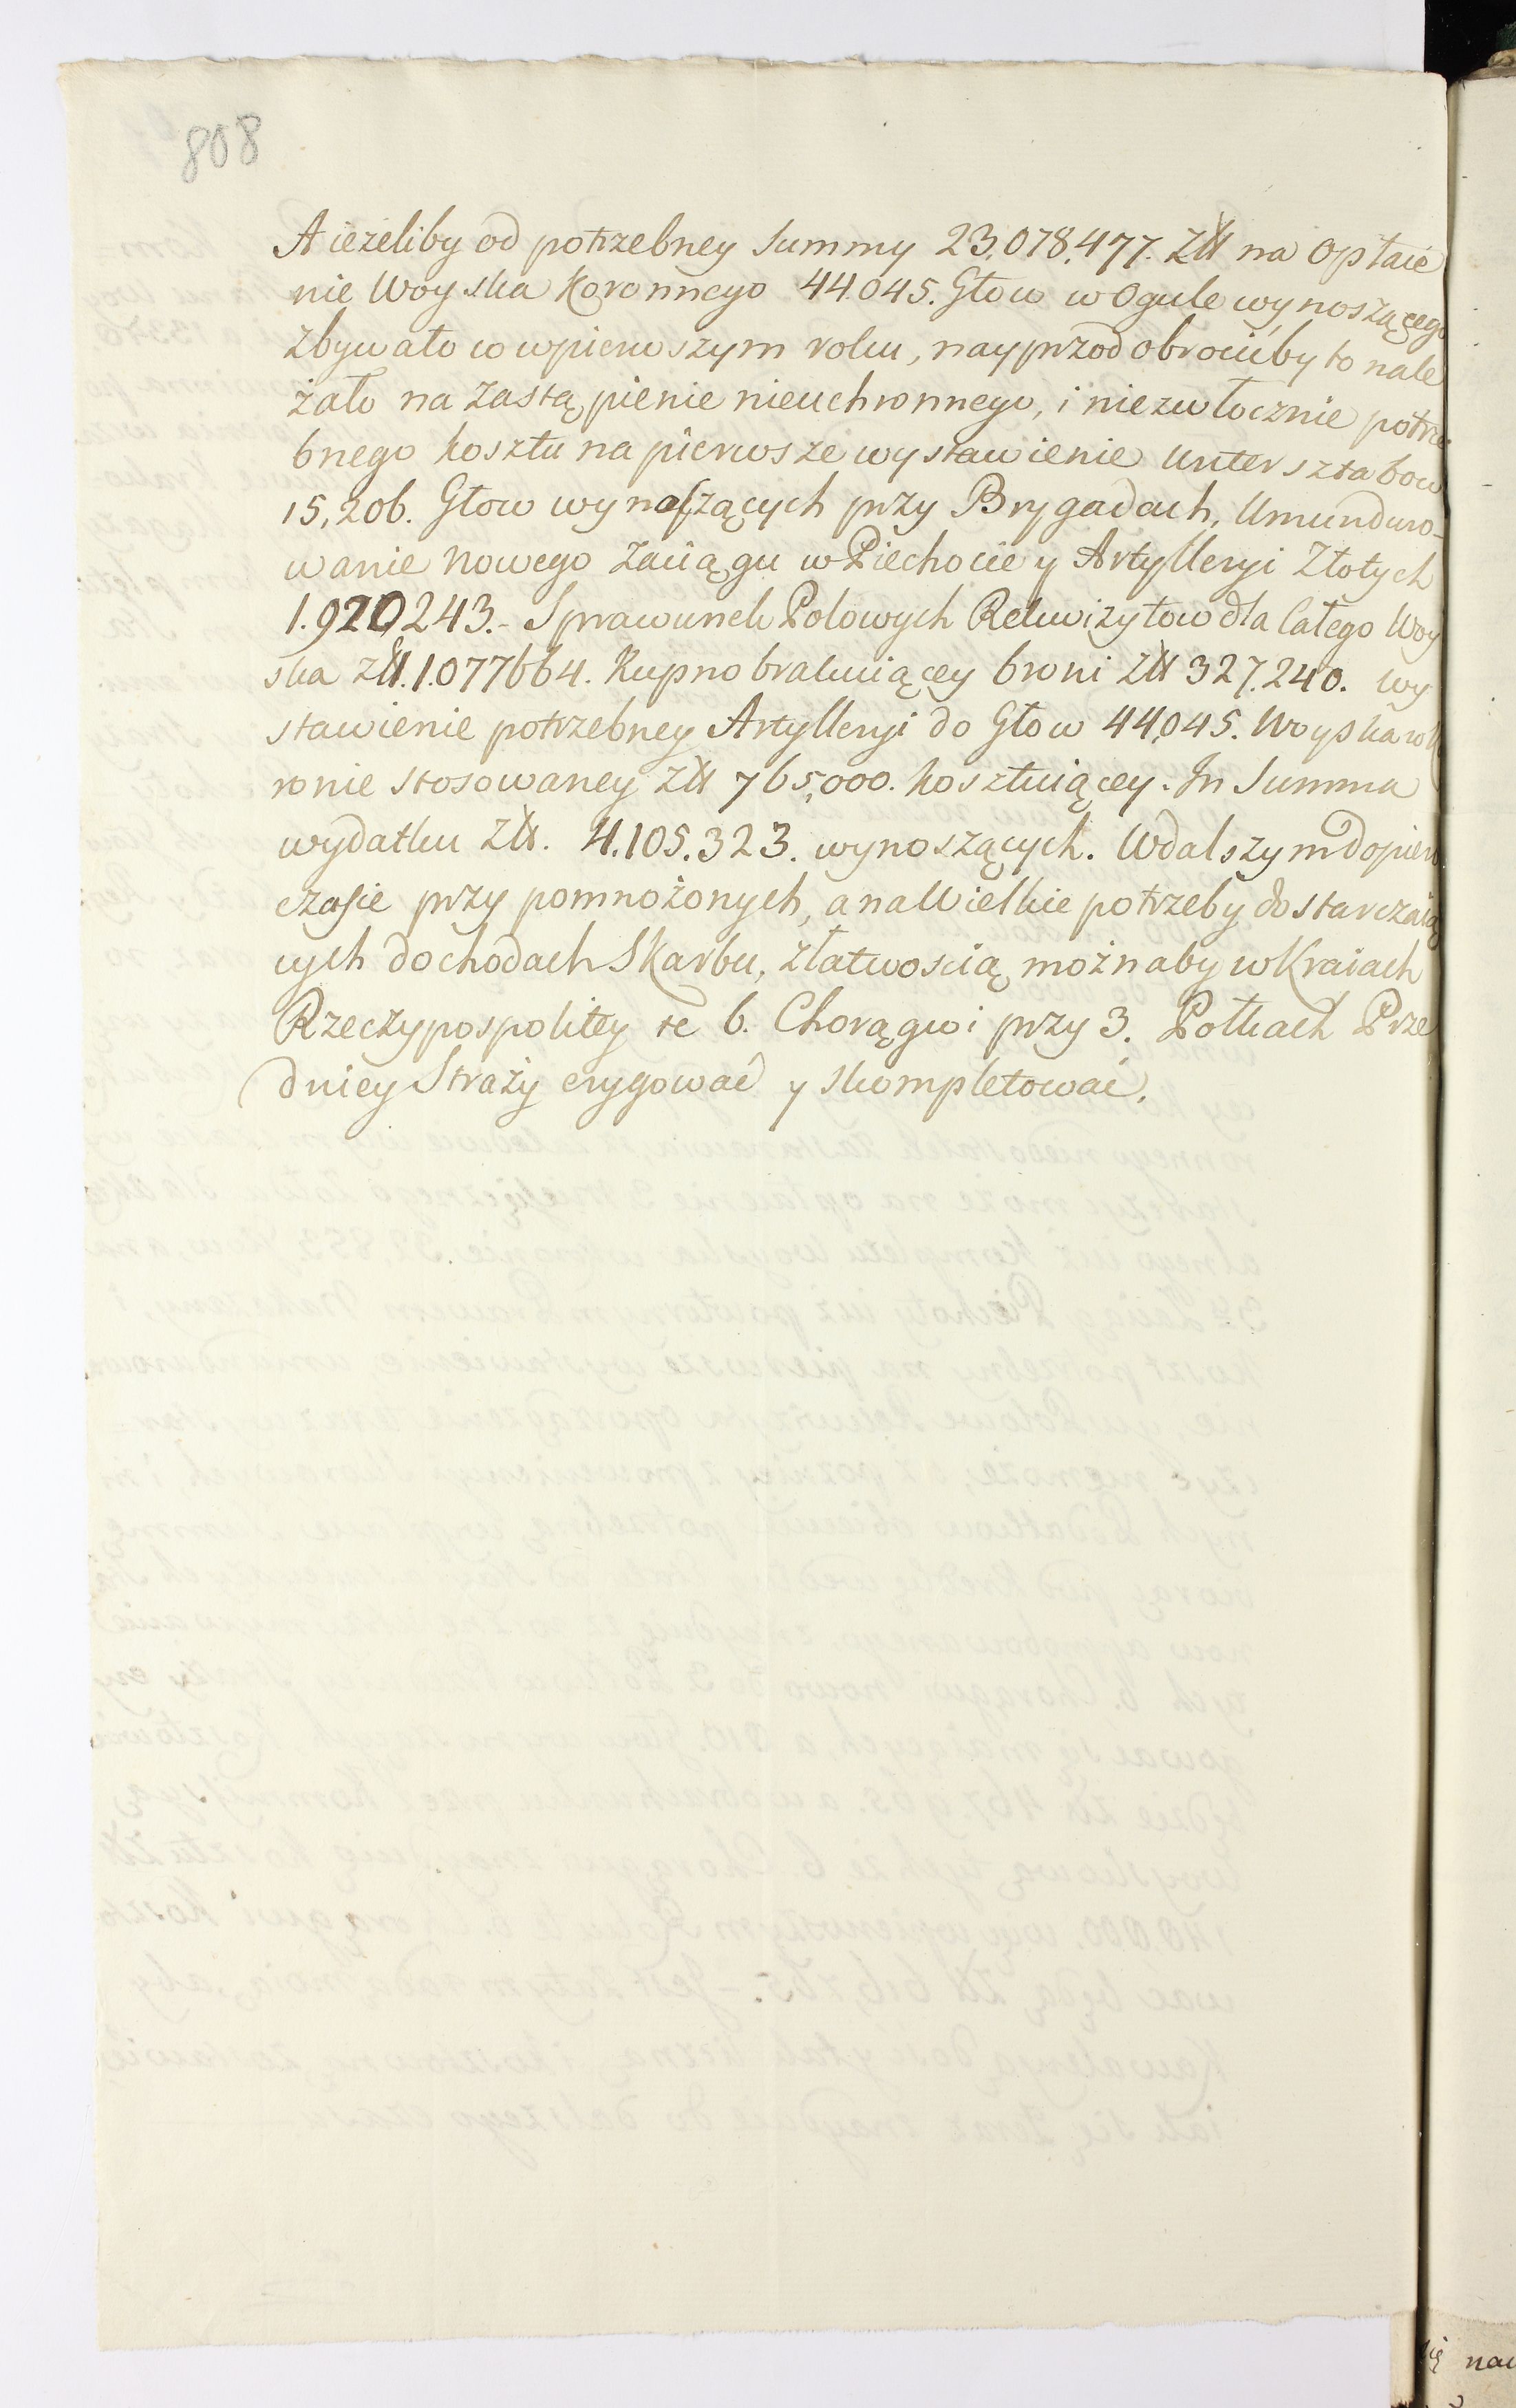 808
A ieżeliby od potrzebney Summy 23,078,477. Złł na opłace
nie Woyska Koronnego 44.045. Głow w Ogule wynoszącego
zbywało co w pierwszym roku, nayprzod obrocićby to nale
żało na zastąpienie nieuchronnego, i niezwłocznie potrze
bnego kosztu na pierwsze wystawienie Untersztabow
15,206. Głow wynoszących przy Brygadach, Umunduro-
wanie nowego zaciągu w Piechocie y Artylleryi Złotych
1.920,243.- Sprawunek Polowych Rekwizytow dla Całego Woy
ska złł. 1.077664. Kupno brakuiącey broni Złł 327.240. wy
stawienie potrzebney Artylleryi do Głow 44,045. Woyska w Ko
ronie stosowaney Złł 765,000. kosztuiącey. In Summa
wydatku Złł. 4.105.323. wynoszących. W dalszym dopiero
czasie przy pomnożonych, a na Wielkie potrzeby dostarczaią
cych dochodach Skarbu, z łatwoscią możnaby w Kraiach
Rzeczypospolitey te 6. Chorągwi przy 3. Pułkach Prze
dniey Straży erygować y skompletować.
nau